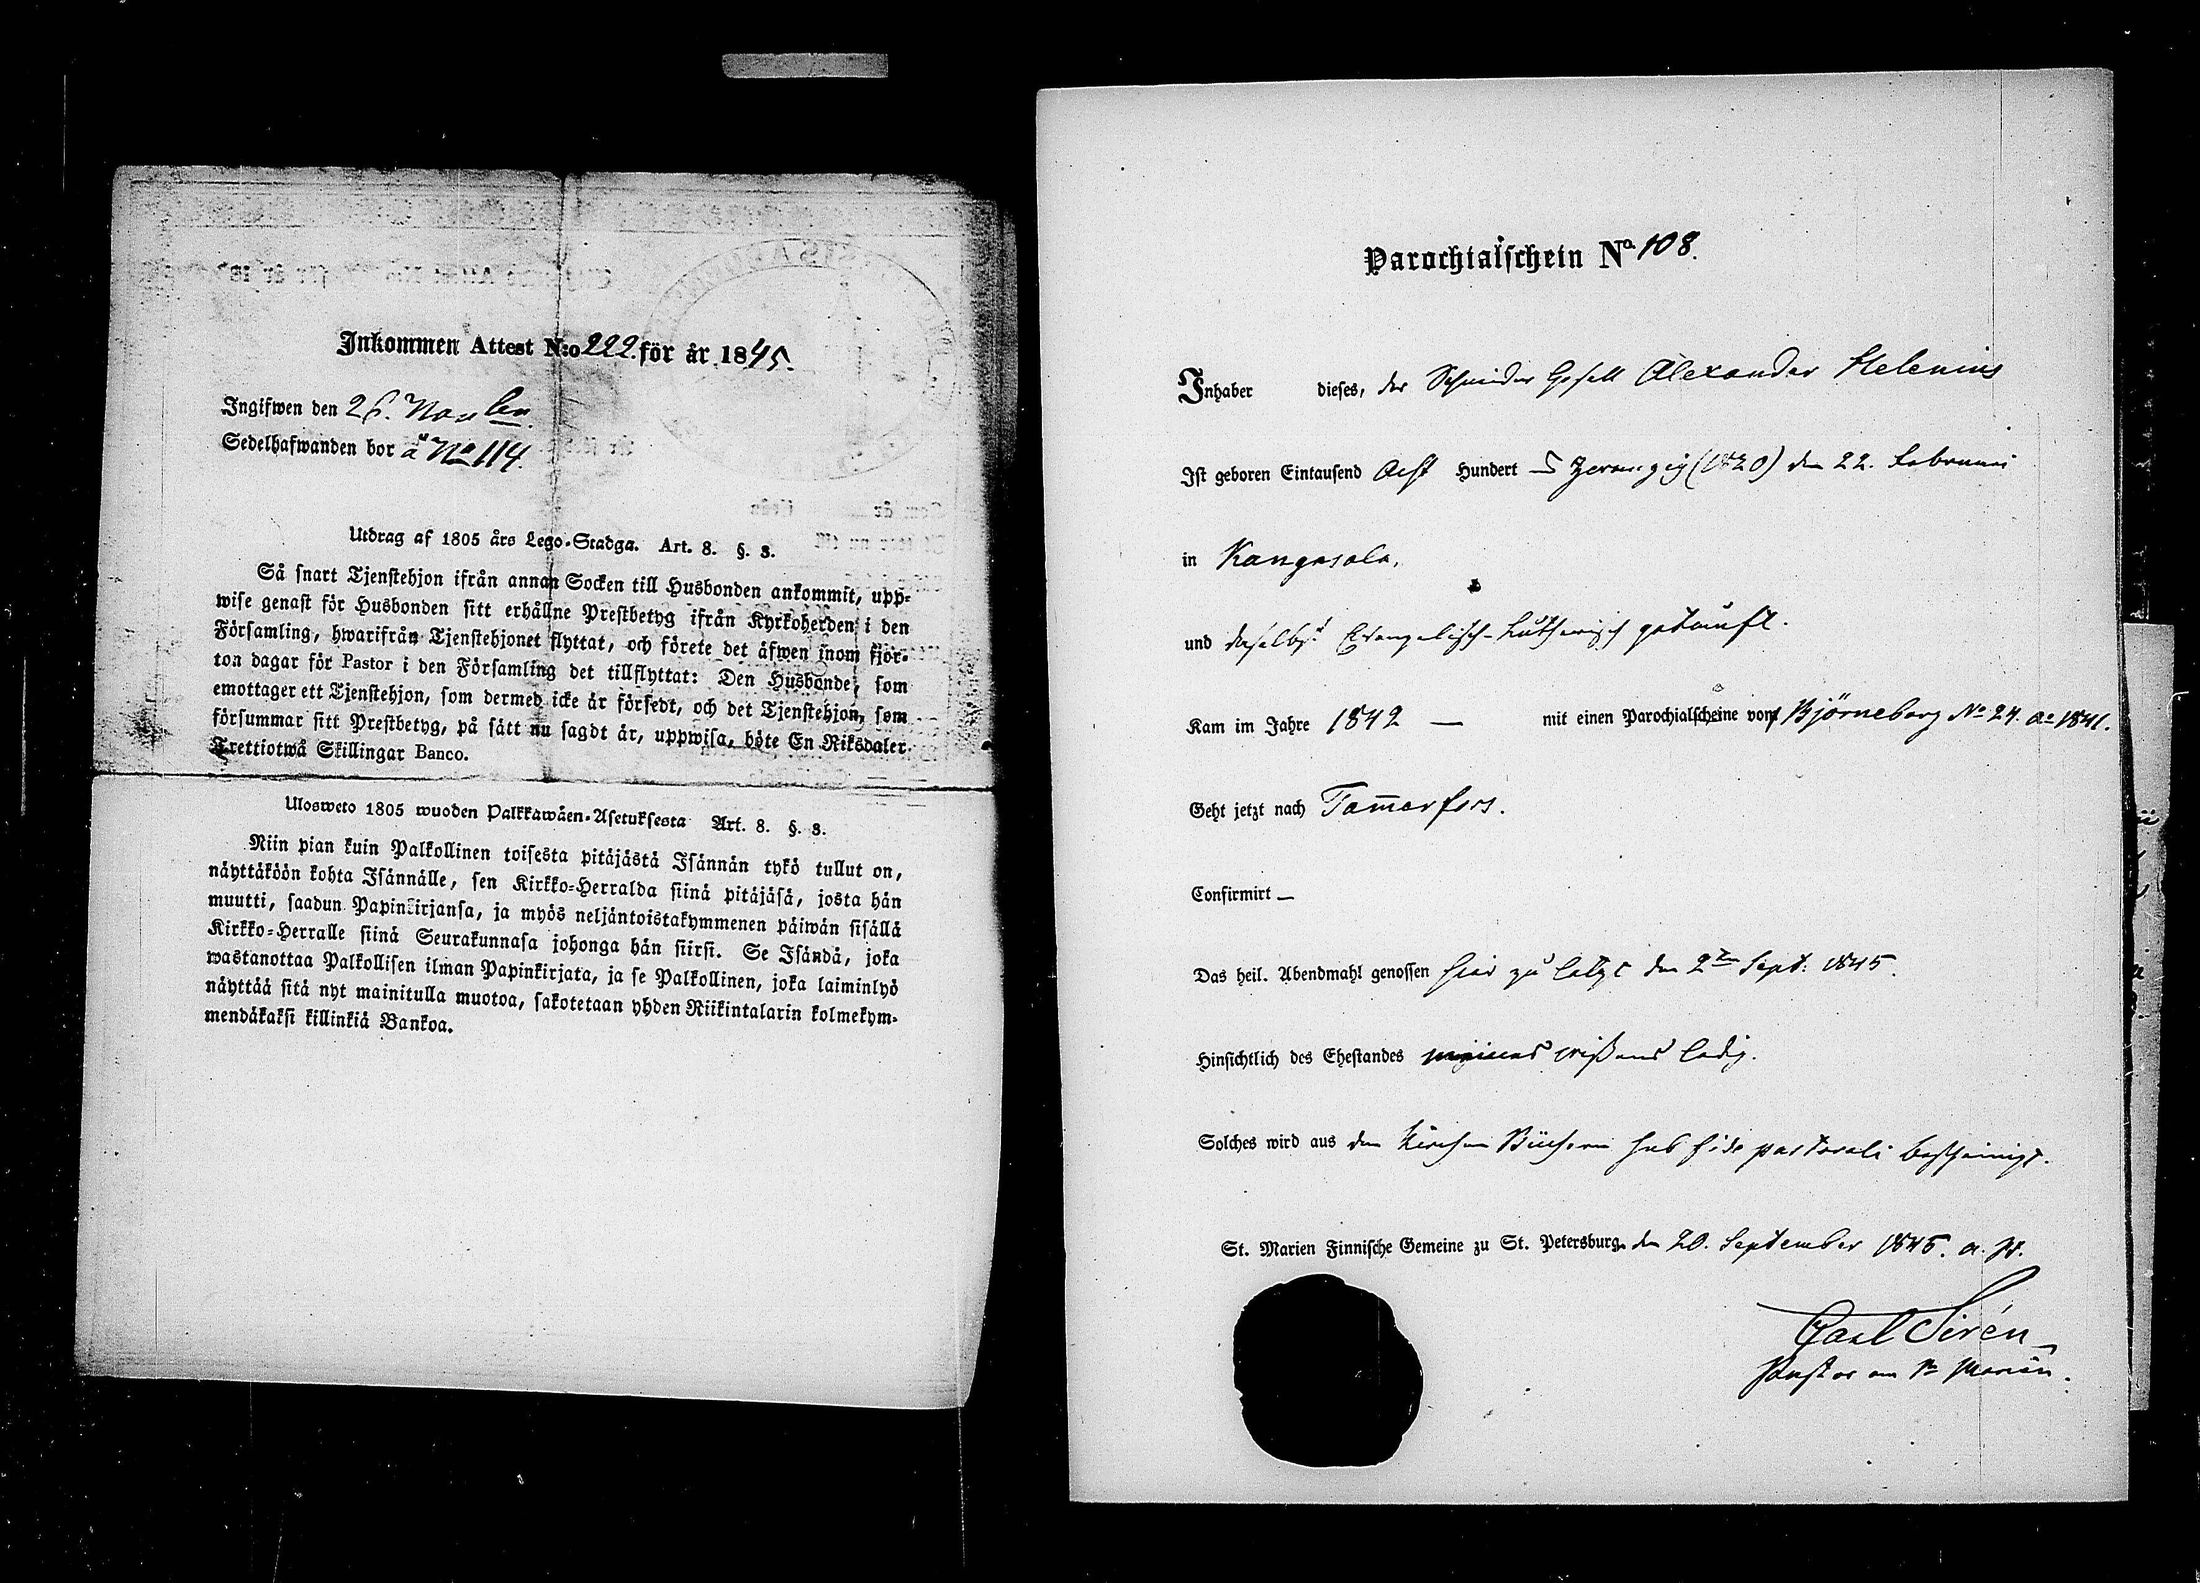 Inkommen Attest N:o 222. för år 1845.
Ingifwen den 26. Novbr
Sedelhafwanden bor å No 114.
Utdrag af 1805 års Lego-Stadga. Art. 8. §. 3.
Så snart Tjenstehjon ifrån annan Socken till Husbonden ankommit, upp-
wise genast för Husbonden sitt erhållne Prestbetyg ifrån Kyrkoherden i den
Församling, hwarifrån Tjenstehjonet flyttat, och förete det äfwen inom fjor-
ton dagar för Pastor i den Församling det tillflyttat: Den Husbonde, som
emottager ett Tjenstehjon, som dermed icke är försedt, och det Tjenstehjon, som
försummar sitt Prestbetyg, på sätt nu sagdt är, uppwisa, böte En Riksdaler
Trettiotwå Skillingar Banco.
Ulosweto 1805 wuoden Palkkawäen-Asetuksesta Art. 8. §. 3.
Niin pian kuin Palkollinen toisesta pitäjästä Isännän tykö tullut on,
näyttäköön kohta Isännälle, sen Kirkko-Herralda siinä pitäjäsä, josta hän
muutti, saadun Papinkirjansa, ja myös neljäntoistakymmenen päiwän sisällä
Kirkko-Herralle siinä Seurakunnasa johonga hän siirsi. Se Isändä, joka
wastanottaa Palkollisen ilman Papinkirjata, ja se Palkollinen, joka laiminlyö
näyttää sitä nyt mainitulla muotoa, sakotetaan yhden Riikintalarin kolmekym-
mendäkaksi killinkiä Bankoa.
Parochialschein No 108.
Inhaber dieses, der Schneider Gesell Alexander Helenius
Ist geboren Eintausend Acht Hundert Zwanzig (1820) den 22. Februari
in Kangasala,
und daselbst Evangelisch-Lutherisch getauft.
Kam im Jahre 1842 — mit einen Parochialscheine von Björneborg No 24. ao 1841.
Geht jetzt nach Tam̄erfors.
Confirmirt —
Das heil. Abendmahl genossen hier zu letzt den 2ten Sept. 1845.
Hinsichtlich des Ehestandes meines wißens ledig.
Solches wird aus den Kirchen Büchern sub fide pastorali bescheinigt.
St. Marien Finnische Gemeine zu St. Petersburg den 20. September 1845. a. St.
Carl Sirén
Pastor an St Marien.